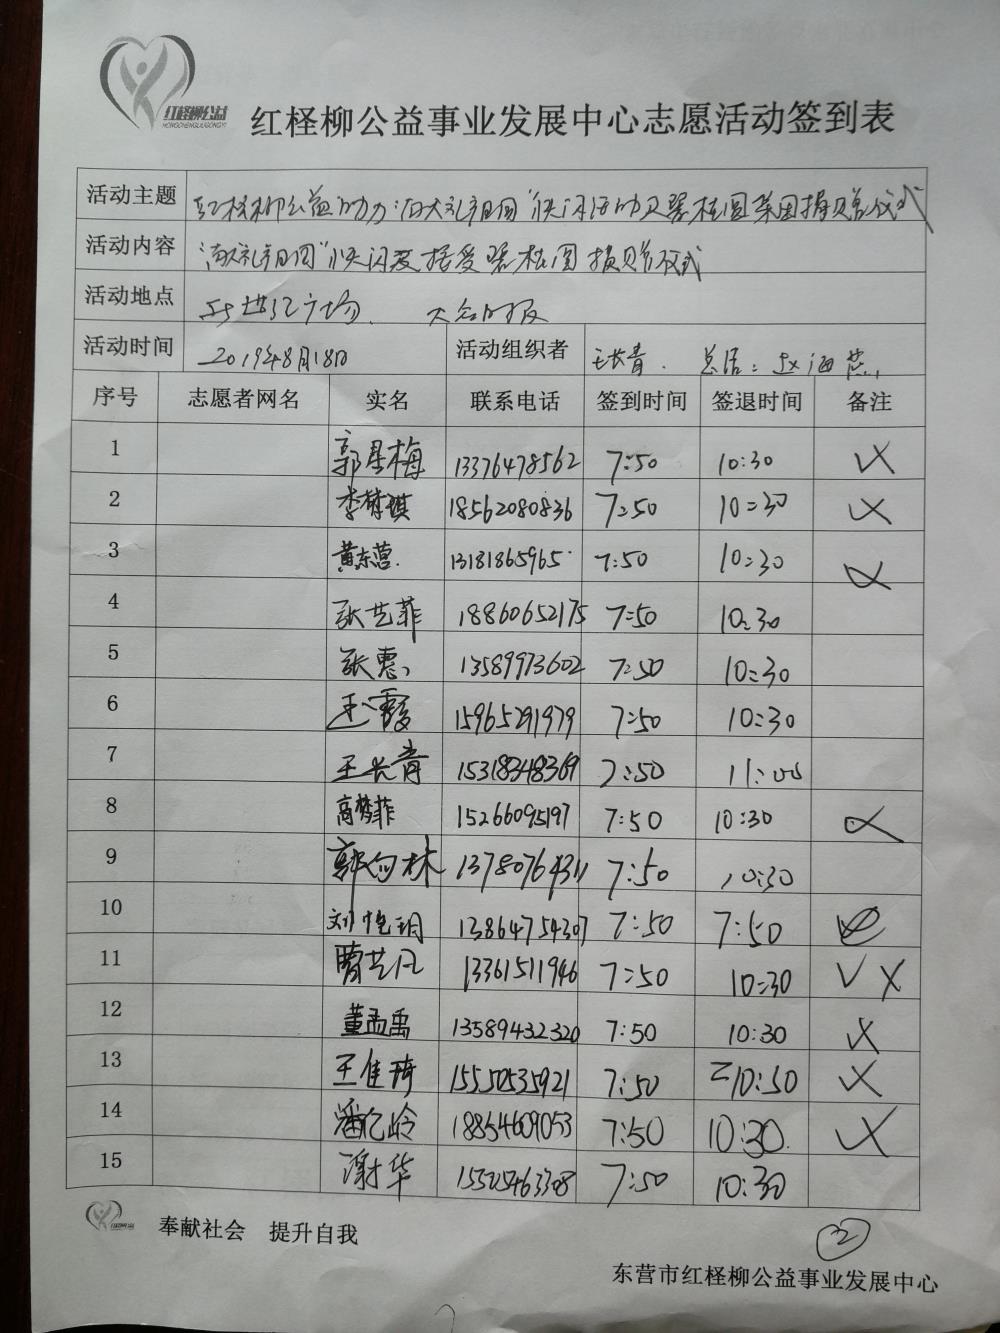 红柽柳公益
HONGCHENGLIUGONGYI
红柽柳公益事业发展中心志愿活动签到表
活动主题 红柽柳公益助力"向大礼祖国"快闪活动及翠桂圆菜团捐赠仪式
活动内容 "祖国"快闪及接受翠桂圆捐赠仪式
活动地点 世纪广场、 大众日报
活动时间 2019年8月18日 活动组织者 王长青. 总结:赵海燕
序号 志愿者网名 实名 联系电话 签到时间 签退时间 备注
1 郭星梅 13376478562 7:50 10:30
2 李梦琪 18562080836 7:50 10:30
3 黄东营 13181865965 7:50 10:30
4 张艺菲 18860652175 7:50 10:30
5 张惠 13589973602 7:50 10:30
6 王霞 15965291979 7:50 10:30
7 王长青 15318348369 7:50 11:00
8 高梦菲 15266095197 7:50 10:30
9 郭向林 13780764311 7:50 10:30
10 刘恺玥 13864754307 7:50 7:50
11 曹艺凡 13361511946 7:50 10:30
12 董孟禹 13589432320 7:50 10:30
13 王佳琦 15550535921 7:50 10:50
14 潘亿岭 18854609053 7:50 10:30
15 谢华 15525463308 7:50 10:30
奉献社会 提升自我
2
东营市红柽柳公益事业发展中心